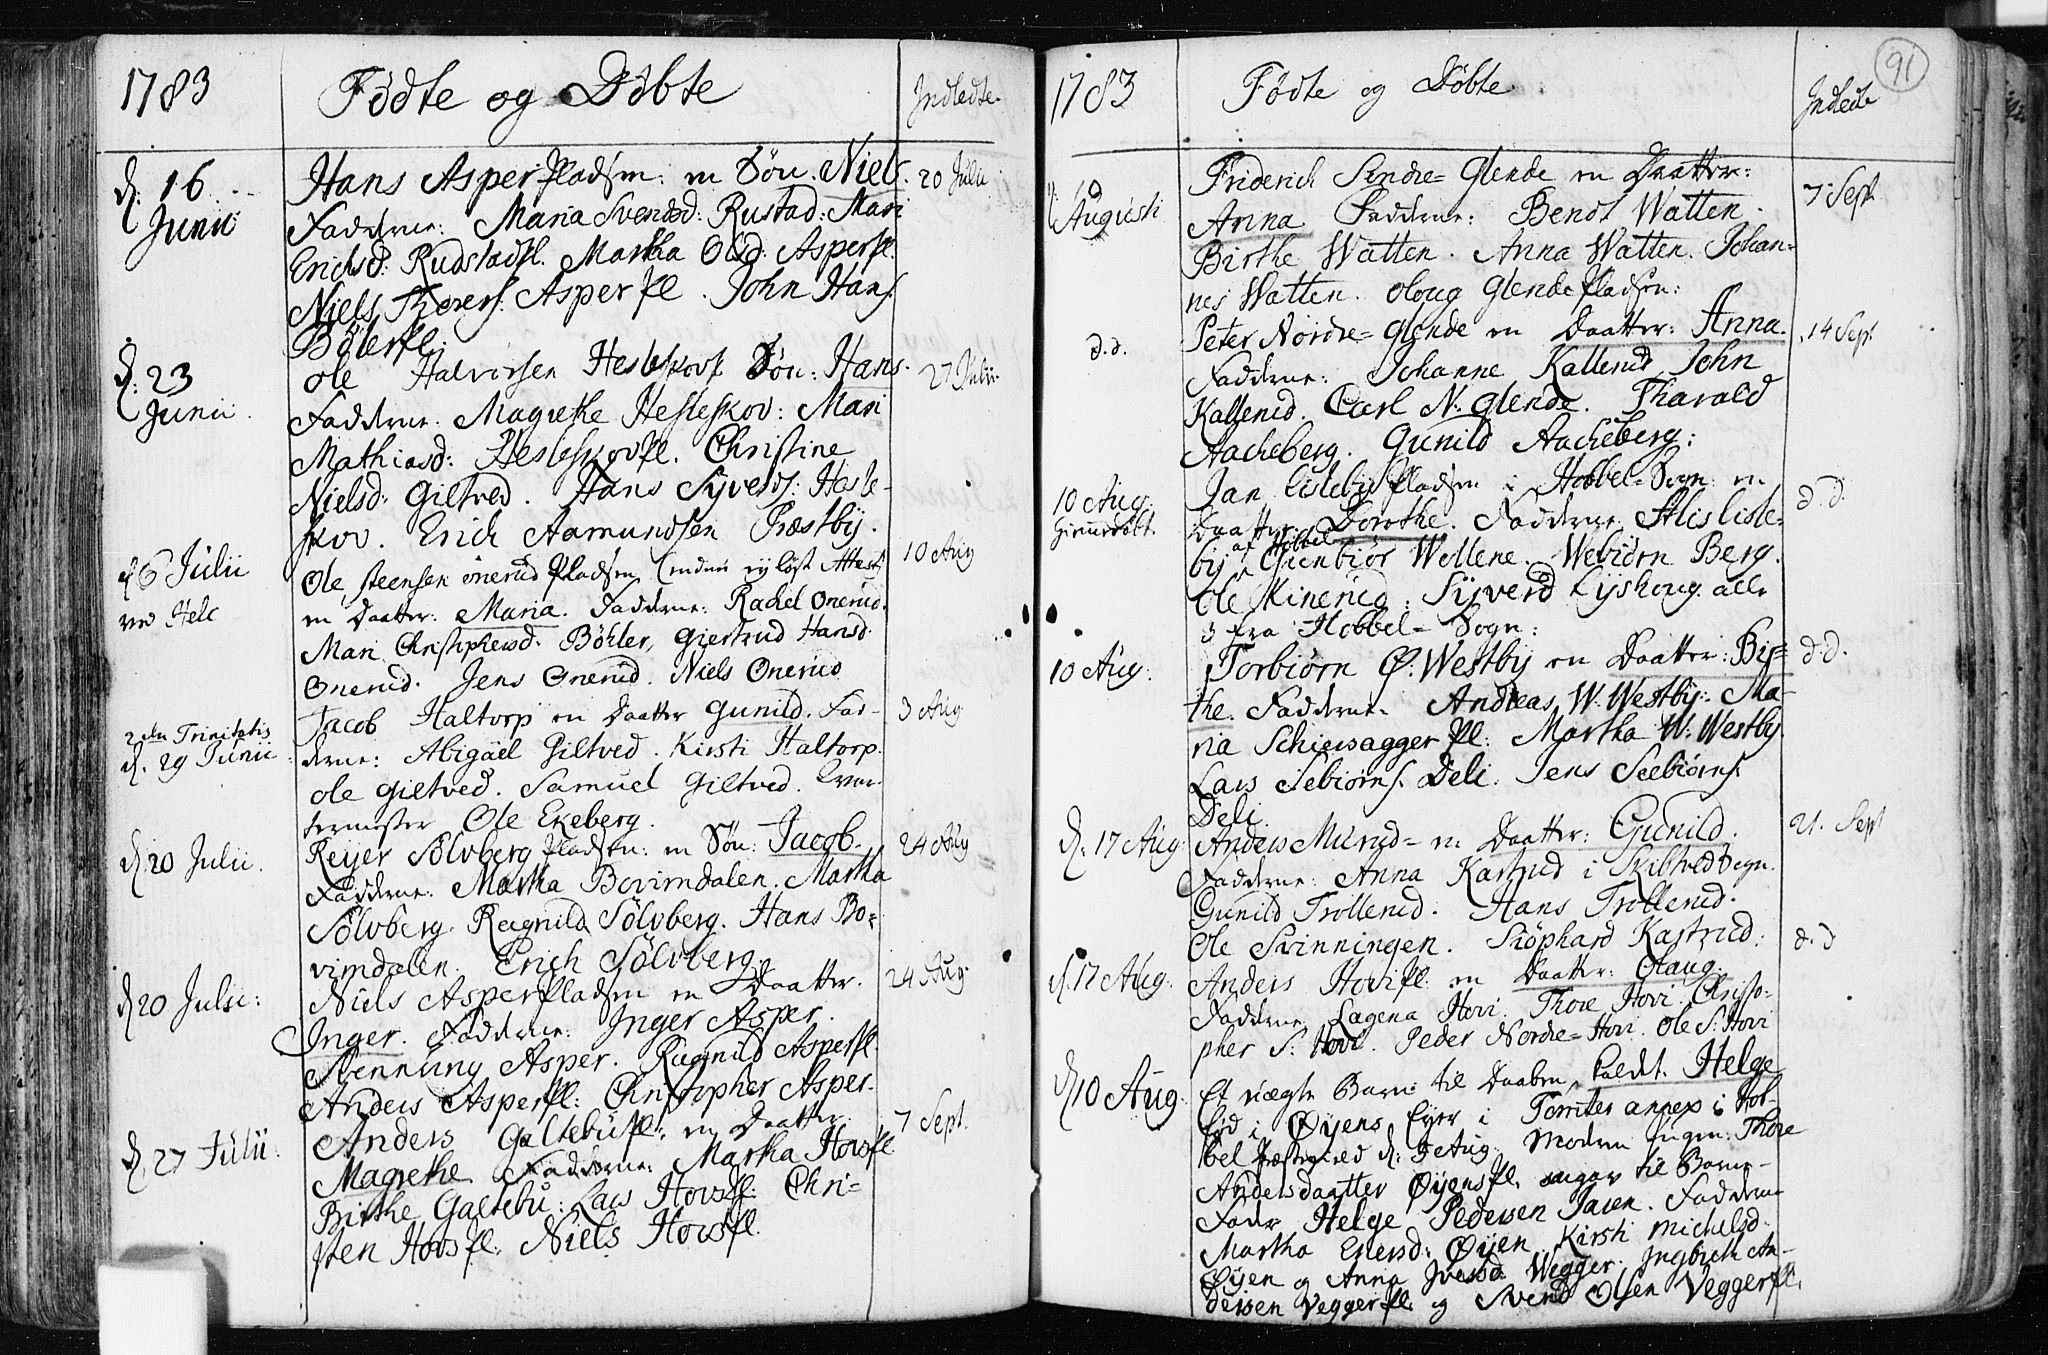 1783 Fødte og Døbte Indledte
d. 16 Junii
Hans Asperpladsen: en Søn. Niels. 20 Julii
Fadderne: Maria Svendsd: Rustad: Mari
Erichsd: Rudstadpl. Martha Olsd: Asperpl.
Niels Thorers. Asperpl. John Hans.
Bölerpl.
d. 23 Junii
Ole Halvorsen Hesleskovs Søn: Hans. 27 Julii
Fadderne. Magrethe Hesleskov: Mari
Mathiasd: Hesleskovpl. Christine
Nielsd: Giltved. Hans Syvers: Hesle-
skov. Erich Aamundsen Præstbÿ.
d 6 Julii
Ole steensen önerud pladsen (endnu ej løst Attest) 10 Aug
en Daatter: Maria. Fadderne: Rachel Onerud.
Mari Christophersd. Böhler, Giertrud Hansd.
Onerud. Jens Onerud. Niels Onerud
2den Trinitatis
d. 29 Junii
Jacob Haltorp en Daatter Gunild. Fad- 3 Aug.
derne: Abigäel Giltved. Kirsti Haltorp.
Ole giltved. Samuel Giltved. Qvar-
termester Ole Ekeberg.
d. 20 Julii.
Reÿer Sölvberg pladsen: en Søn: Jacob. 24 Aug
Fadderne: Martha Bovimdalen. Martha
Sölvberg. Ragnild Sölvberg. Hans Bo-
vimdalen. Erich Sölvberg.
d 20 Julii:
Niels Asperpladsen en Daatter. 24 Aug.
Inger. Fadderne: Inger Asper.
Svennung Asper. Ragnild Asperpl.
Anders Asperpl: Christopher Asper.
d. 27 Julii:
Anders Galtebupl: en Daatter: 7 Sept.
Magrethe Fadderne: Martha Hovspl
Birthe Galtebu: Lars Hovspl: Chri-
sten Hovspl. Niels Hovspl.
91
1783 Fødte og Döbte Indledte
Augusti
Friderich Söndre-Glende en Daatter: 7 Sept
Anna Fadderne: Bendt Watten.
Birthe Watten. Anna Watten. Johan-
nes Watten. Oloug Glendepladsen:
d.d.
Peter Nordre-Glende en Daatter: Anna. 14 Sept
Fadderne: Johanne Kallerud, John
Kallerud. Carl N. Glende. Tharald
Aacheberg. Gunild Aacheberg:
10 Aug. Hiemedøbt.
Jan Lislebÿpladsen i Hobbel-Sogn en d.d.
Daatter: Dorothe. Fadderne: Alis lisle-
af Hobbel
bÿ Gunbiør Wollene. Webiörn Berg.
Ole Kinerud: Sÿverd Lÿshoug alle
3 fra Hobbel-Sogn:
10 Aug.
Torbiörn Ø. Westbÿ en Daatter: Bir- d.d.
the. Fadderne. Andreas W. Westbÿ. Ma-
ria Schiersaggerpl: Martha W. Westbÿ.
Lars Sebiörns. Deli. Jens Seebiörns.
Deli.
d. 17 Aug.
Anders Murud- en Daatter: Gunild. 21. Sept
Fadderne: Anna Kastrud i Skibtved Sogn.
Gunild Trollerud. Hans Trollerud.
Ole Svinningen. Kastrud:
d. 17 Aug.
Anders Hovipl: en Daatter: Olaug. d.d
Fadderne Lagena Hovi. Thore Hovi. Christo-
pher S: Hovi. Peder Nordre-Hovi. Ole S: Hovi
d. 10 Aug:
Et uægte Barn til Daaben, kaldt: Helge
fød i Øÿens Eyer i Tomter annex i Hob-
bel Præstegield d: 5 Aug. Moderen Thore
Andersdaatter Øÿenspl. til Barne-
Fader Helge Pedersen Fadderne
Martha Enersd: Øÿen. Kirsti Michelsd.
Øÿen og Anna Iversd. Wegger. Ingbreth An-
dersen Veggerpl. og Svend Olsen Veggerpl.